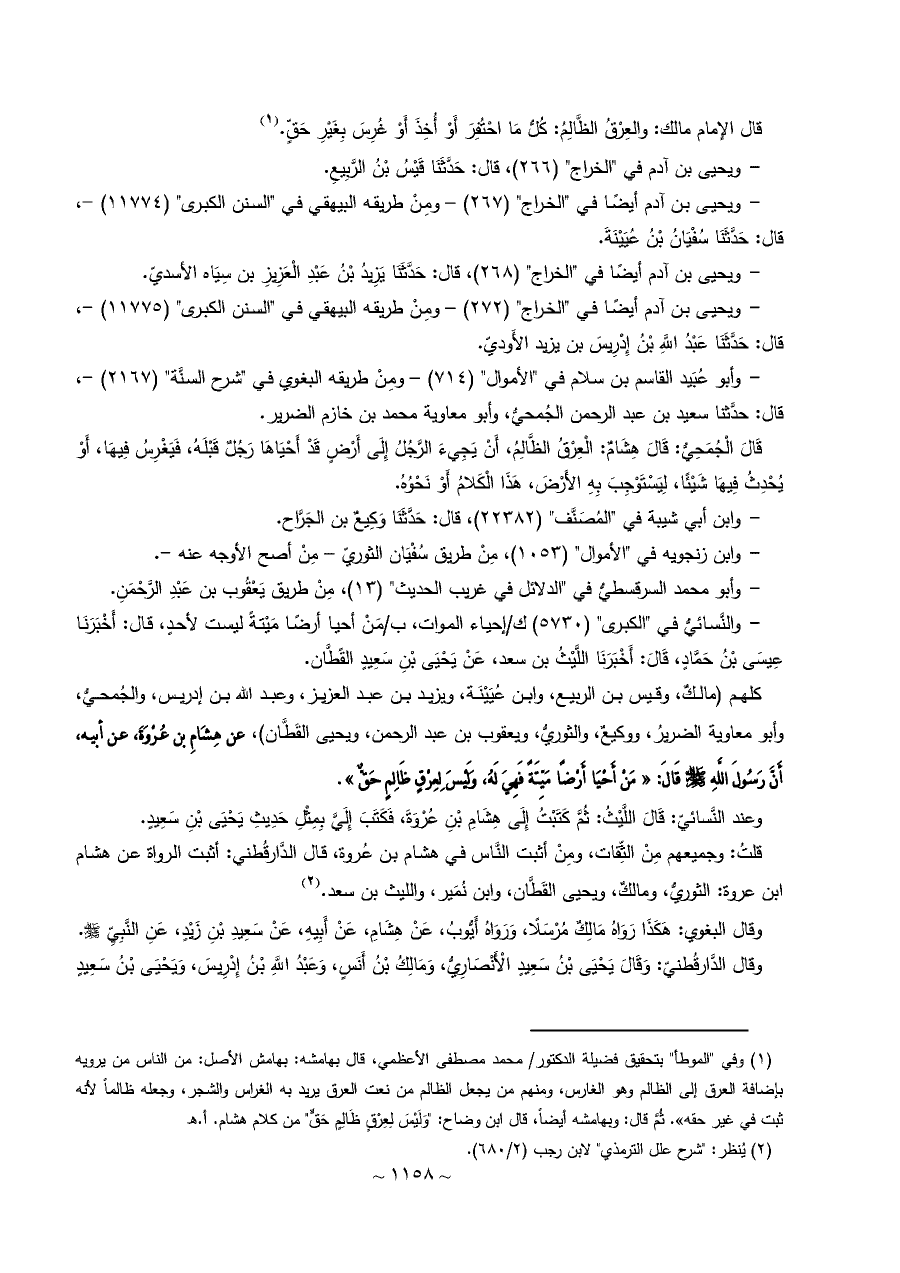 قال الإمام مالك: والعِرْقُ الظَّالِمُ: كُلُّ مَا احْتُفِرَ أَوْ أُخِذَ أَوْ غُرِسَ بِغَيْرِ حَقٍّ.(١)
– ويحيى بن آدم في "الخراج" (٢٦٦)، قال: حَدَّثَنَا قَيْسُ بْنُ الرَّبِيعِ.
– ويحيى بن آدم أيضًا في "الخراج" (٢٦٧) – ومِنْ طريقه البيهقي في "السنن الكبرى" (١١٧٧٤) –،
قال: حَدَّثَنَا سُفْيَانُ بْنُ عُيَيْنَةَ.
– ويحيى بن آدم أيضًا في "الخراج" (٢٦٨)، قال: حَدَّثَنَا يَزِيدُ بْنُ عَبْدِ الْعَزِيزِ بن سِيَاه الأسديّ.
– ويحيى بن آدم أيضًا في "الخراج" (٢٧٢) – ومِنْ طريقه البيهقي في "السنن الكبرى" (١١٧٧٥) –،
قال: حَدَّثَنَا عَبْدُ اللَّهِ بْنُ إِدْرِيسَ بن يزيد الأَوديّ.
– وأبو عُبَيد القاسم بن سلام في "الأموال" (٧١٤) – ومِنْ طريقه البغوي في "شرح السنَّة" (٢١٦٧) –،
قال: حدَّثنا سعيد بن عبد الرحمن الجُمحيُّ، وأبو معاوية محمد بن خازم الضرير.
قَالَ الْجُمَحِيُّ: قَالَ هِشَامٌ: الْعِرْقُ الظَّالِمُ، أَنْ يَجِيءَ الرَّجُلُ إِلَى أَرْضٍ قَدْ أَحْيَاهَا رَجُلٌ قَبْلَهُ، فَيَغْرِسُ فِيهَا، أَوْ
يُحْدِثُ فِيهَا شَيْئًا، لِيَسْتَوْجِبَ بِهِ الأَرْضَ، هَذَا الْكَلامُ أَوْ نَحْوُهُ.
– وابن أبي شيبة في "المُصَنَّف" (٢٢٣٨٢)، قال: حَدَّثَنَا وَكِيعُ بن الجَرَّاح.
– وابن زنجويه في "الأموال" (١٠٥٣)، مِنْ طريق سُفْيَان الثوريّ – مِنْ أصح الأوجه عنه –.
– وأبو محمد السرقسطيُّ في "الدلائل في غريب الحديث" (١٣)، مِنْ طريق يَعْقُوب بن عَبْدِ الرَّحْمَنِ.
– والنَّسائيُّ في "الكبرى" (٥٧٣٠) ك/إحياء الموات، ب/مَنْ أحيا أرضًا مَيْتةً ليست لأحدٍ، قال: أَخْبَرَنَا
عِيسَى بْنُ حَمَّادٍ، قَالَ: أَخْبَرَنَا اللَّيْثُ بن سعد، عَنْ يَحْيَى بْنِ سَعِيدٍ القَطَّان.
كلهم (مالكٌ، وقيس بن الربيع، وابن عُيَيْنَة، ويزيد بن عبد العزيز، وعبد الله بن إدريس، والجُمحيُّ،
وأبو معاوية الضريرُ، ووكيعٌ، والثوريُّ، ويعقوب بن عبد الرحمن، ويحيى القَطَّان)، عن هِشَامِ بن عُرْوَةَ، عن أبيه،
أنَّ رَسُولَ اللَّهِ ﷺ قَالَ: « مَنْ أَحْيَا أَرْضاً مَيِّتَةً فَهِيَ لَهُ، وَلَيْسَ لِعِرْقٍ ظَالِمٍ حَقٌّ ».
وعند النَّسائيّ: قَالَ اللَّيْثُ: ثُمَّ كَتَبْتُ إِلَى هِشَامِ بْنِ عُرْوَةَ، فَكَتَبَ إِلَيَّ بِمِثْلِ حَدِيثِ يَحْيَى بْنِ سَعِيدٍ.
قلتُ: وجميعهم مِنْ الثِّقات، ومِنْ أثبت النَّاس في هشام بن عُروة، قال الدَّارقُطني: أثبت الرواة عن هشام
ابن عروة: الثوريُّ، ومالكٌ، ويحيى القَطَّان، وابن نُمَير، والليث بن سعد.(٢)
وقال البغوي: هَكَذَا رَوَاهُ مَالِكٌ مُرْسَلًا، وَرَوَاهُ أَيُّوبُ، عَنْ هِشَامِ، عَنْ أَبِيهِ، عَنْ سَعِيدِ بْنِ زَيْدٍ، عَنِ النَّبِيِّ ﷺ.
وقال الدَّارقُطنيّ: وَقَالَ يَحْيَى بْنُ سَعِيدٍ الْأَنْصَارِيُّ، وَمَالِكُ بْنُ أَنَسٍ، وَعَبْدُ اللَّهِ بْنُ إِدْرِيسَ، وَيَحْيَى بْنُ سَعِيدٍ
(١) وفي "الموطأ" بتحقيق فضيلة الدكتور/ محمد مصطفى الأعظمي، قال بهامشه: بهامش الأصل: من الناس من يرويه
بإضافة العرق إلى الظالم وهو الغارس، ومنهم من يجعل الظالم من نعت العرق يريد به الغراس والشجر، وجعله ظالماً لأنه
ثبت في غير حقه». ثُمَّ قال: وبهامشه أيضاً، قال ابن وضاح: "وَلَيْسَ لِعِرْقٍ ظَالِمٍ حَقٌّ" من كلام هشام. أ.هـ
(٢) يُنظر: "شرح علل الترمذي" لابن رجب (٦٨٠/٢).
~ ١١٥٨ ~